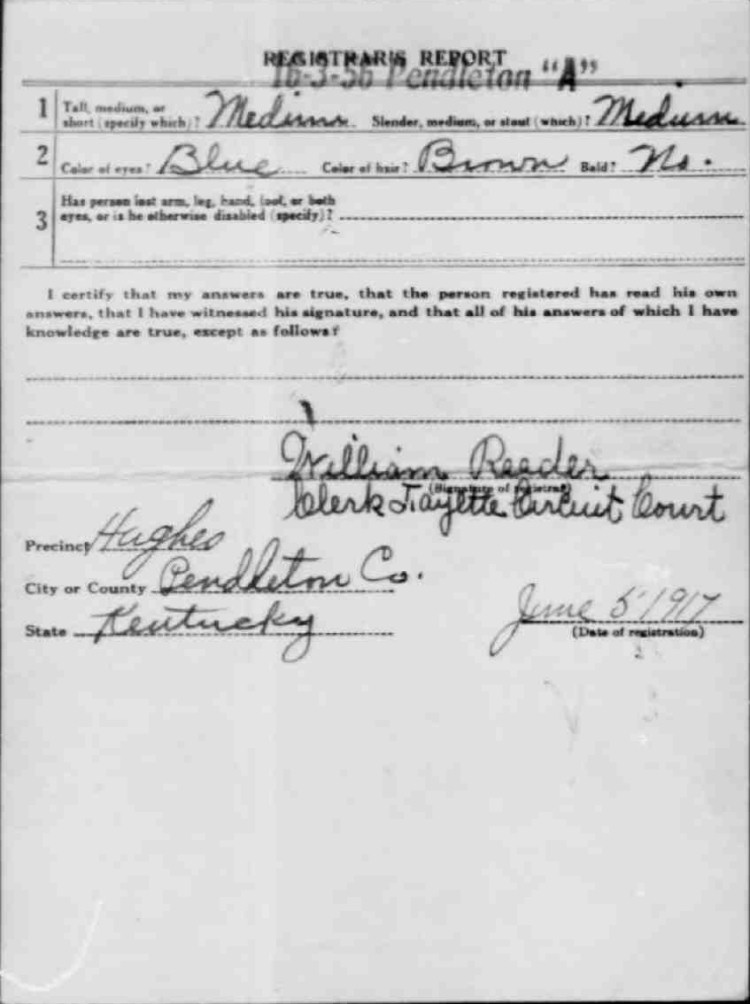 REGISTRAR'S REPORT
16-3-56 Pendleton "A"
1 Tall, medium, or short (specify which)? Medium Slender, medium, or stout (which)? Medium
2 Color of eyes? Blue Color of hair? Brown Bald? No.
3 Has person lost arm, leg, hand, foot, or both
eyes, or is he otherwise disabled (specify)?
I certify that my answers are true, that the person registered has read his own
answers, that I have witnessed his signature, and that all of his answers of which I have
knowledge are true, except as follows:
William Reader
(Signature of registrar)
Clerk Fayette Circuit Court
Precinct Hughes
City or County Pendleton Co.
State Kentucky
June 5 1917
(Date of registration)